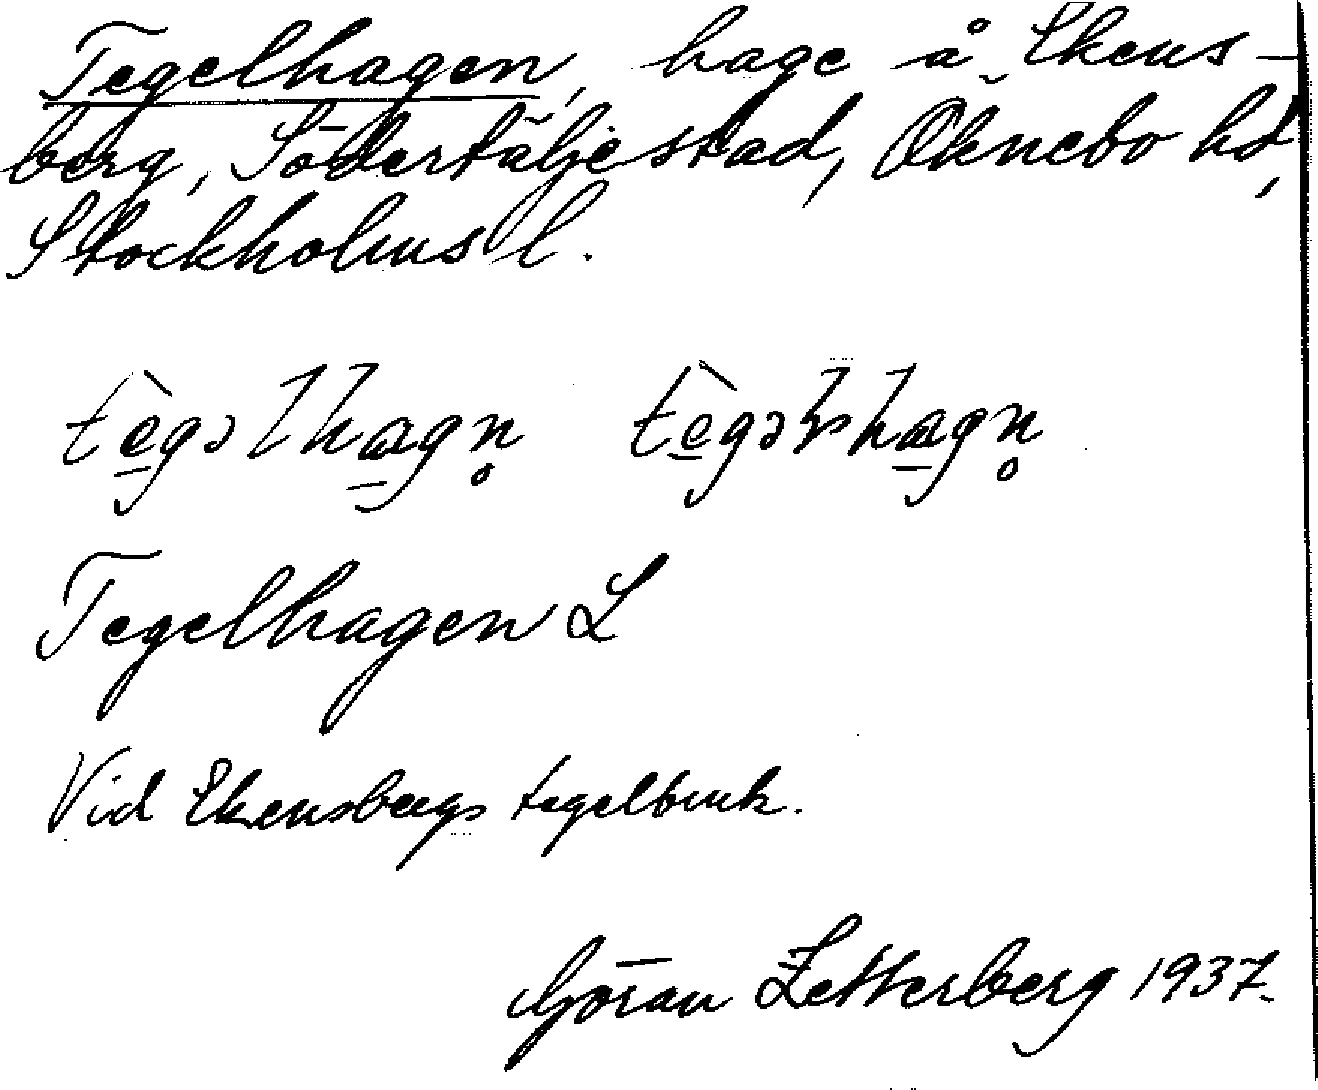 Tegelhagen, hage å Ekens-
berg, Södertälje stad, Öknebo hd,
Stockholms l.
tègəlhagn̥ tègəlshagn̥
Tegelhagen L
Vid Ekensbergs tegelbruk.
Göran Zetterberg 1937.